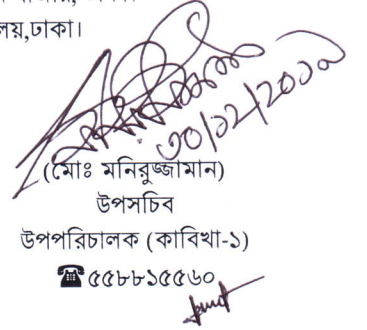 লয়,ঢাকা।
৩০/১২/২০১৯
(মোঃ মনিরুজ্জামান)
উপসচিব
উপপরিচালক (কাবিখা-১)
☎৫৫৮৮১৫৫৬০